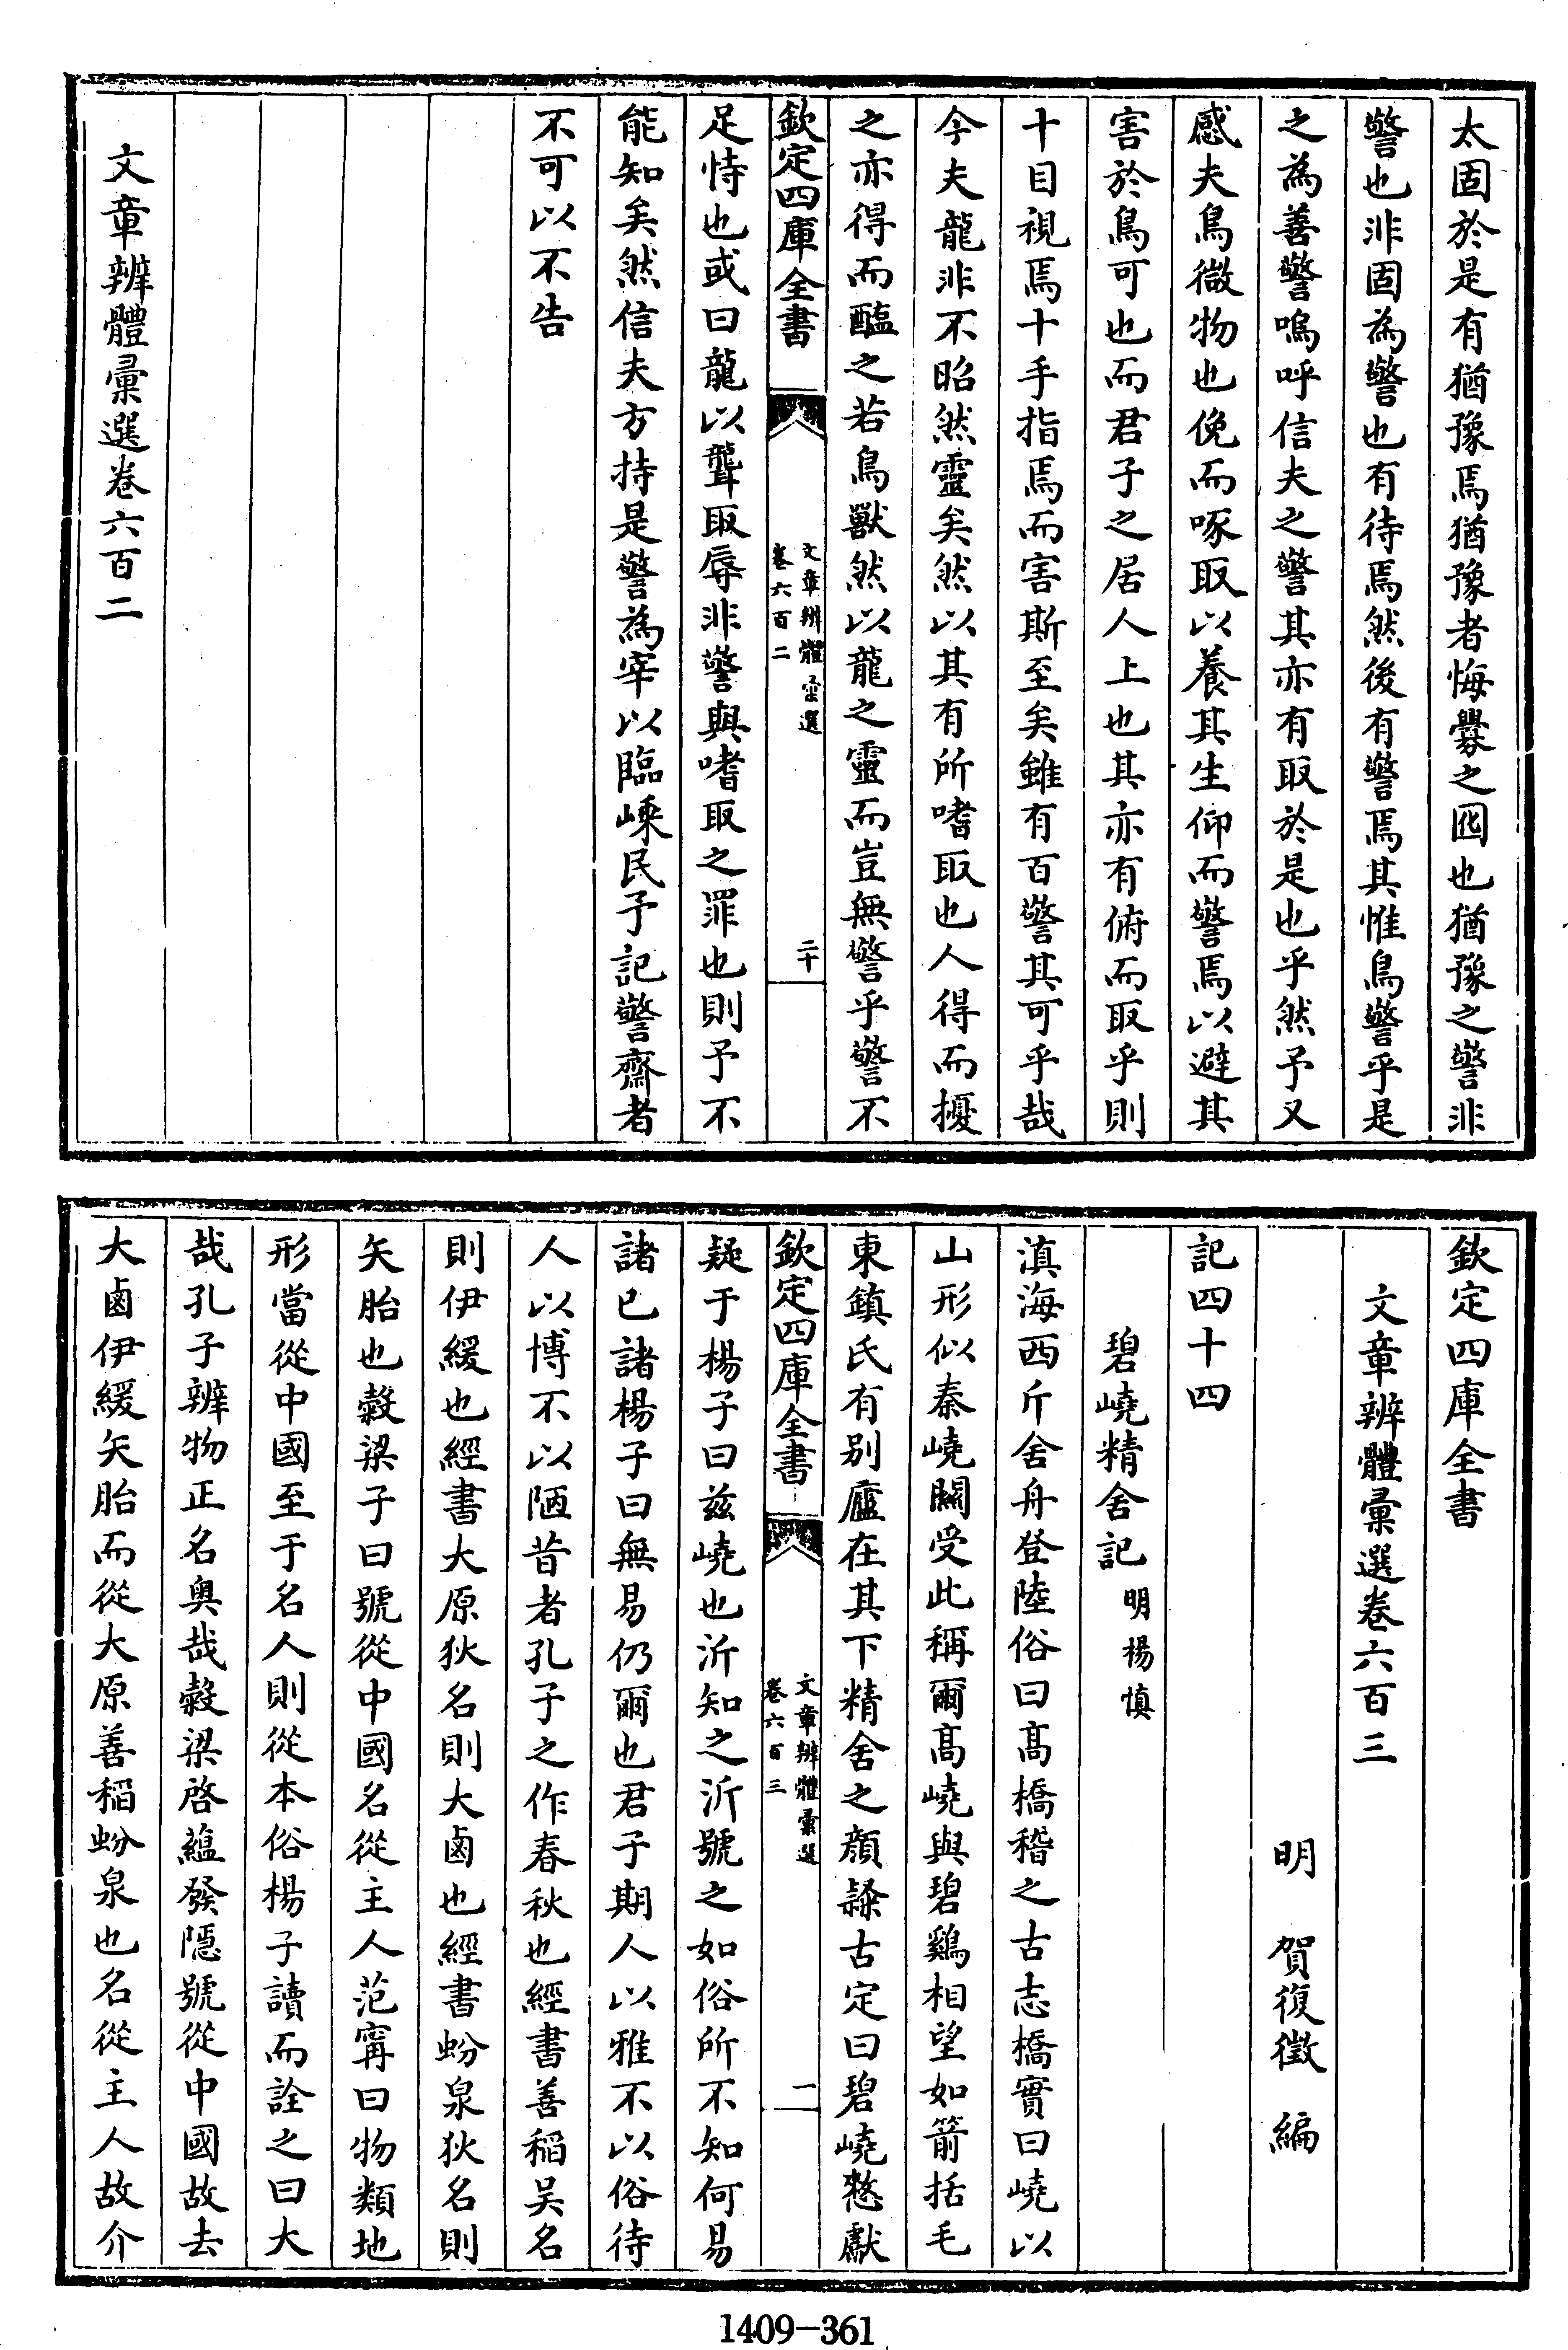 太固於是有猶豫焉猶豫者悔釁之囮也猶豫之警非
警也非固為警也有待焉然後有警焉其惟鳥警乎是
之為善警嗚呼信夫之警其亦有取於是也乎然予又
感夫鳥微物也俛而啄取以養其生仰而警焉以避其
害於鳥可也而君子之居人上也其亦有俯而取乎則
十目視焉十手指焉而害斯至矣雖有百警其可乎哉
今夫龍非不昭然靈矣然以其有所嗜取也人得而擾
之亦得而醢之若鳥獸然以龍之靈而豈無警乎警不
欽定四庫全書
文章辨體彙選
卷六百二
二十
足恃也或曰龍以聾取辱非警與嗜取之罪也則予不
能知矣然信夫方持是警為宰以臨嵊民予記警齋者
不可以不告
文章辨體彙選卷六百二
欽定四庫全書
文章辨體彙選卷六百三
明 賀復徵 編
記四十四
碧嶢精舍記 明楊慎
滇海西斤舍舟登陸俗曰髙橋稽之古志橋實曰嶢以
山形似秦嶢關受此稱爾髙嶢與碧鷄相望如箭括毛
東鎮氏有别廬在其下精舍之顔𨽻古定曰碧嶢憗獻
欽定四庫全書
文章辨體彙選
卷六百三
一
疑于楊子曰兹嶢也沂知之沂號之如俗所不知何易
諸已諸楊子曰無易仍爾也君子期人以雅不以俗待
人以博不以陋昔者孔子之作春秋也經書善稻吴名
則伊緩也經書大原狄名則大鹵也經書蚡泉狄名則
矢胎也糓梁子曰號從中國名從主人范甯曰物類地
形當從中國至于名人則從本俗楊子讀而詮之曰大
哉孔子辨物正名奥哉糓梁啓藴發隠號從中國故去
大鹵伊緩矢胎而從大原善稻蚡泉也名從主人故介
1409-361